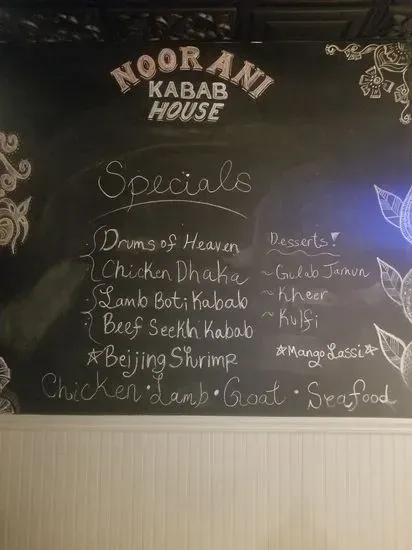 NOORANI
KABAB
HOUSE
Specials
Drums of Heaven
Chicken Dhaka
Lamb Boti Kabab
Beef Seekh Kabab
☆Beijing Shrimp
Desserts!
~Gulab Jamun
~Kheer
~Kulfi
☆Mango Lassi☆
Chicken • Lamb • Goat • Seafood